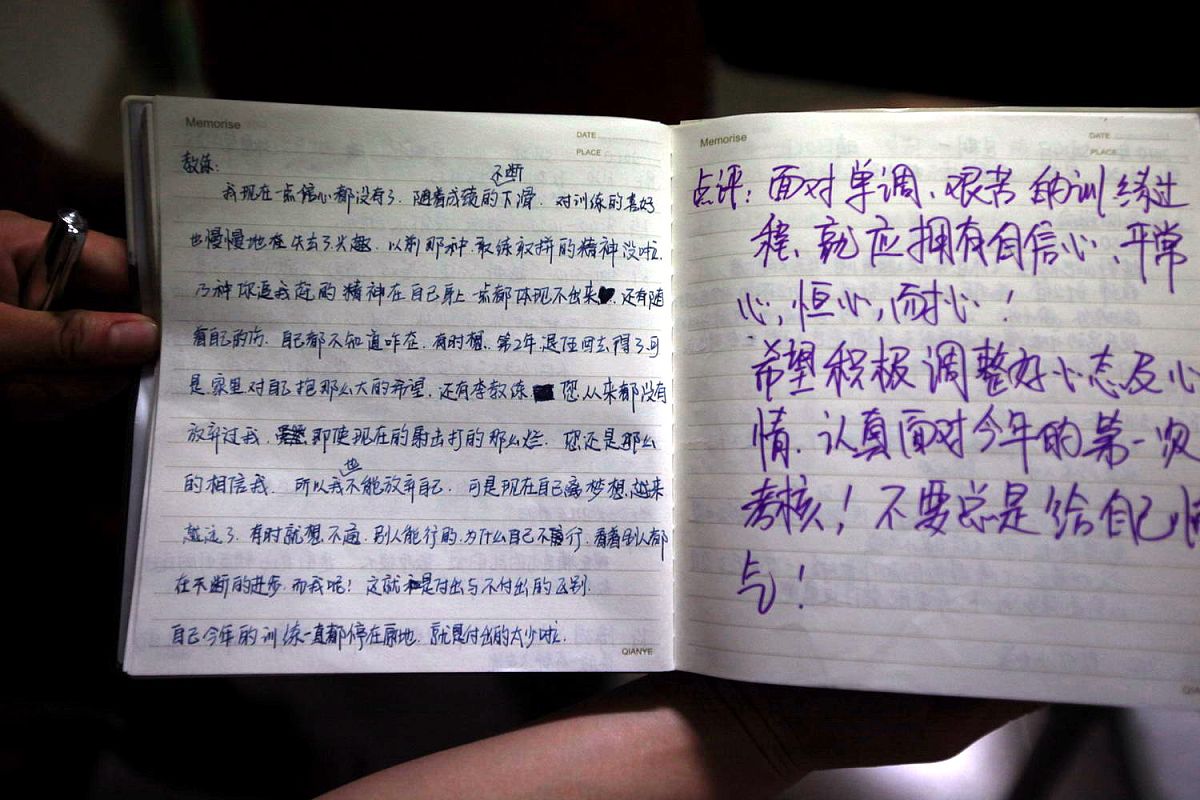 Memorise
DATE
PLACE
教练:
不断
我现在一点信心都没有了.随着成绩的下滑.对训练的喜好
也慢慢地在失去了兴趣.以前那种.敢练敢拼的精神没啦.
那种你追我赶的精神在自己身上一点都体现不出来.还有随
着自己的伤.自己都不知道咋在.有时想.第2年.退回去得了.可
是家里对自己抱那么大的希望.还有李教练.您.从来都没有
放弃过我.即使现在的射击打的那么烂.您还是那么
也
的相信我.所以我不能放弃自己.可是现在自己离梦想.越来
越远了.有时就想不通.别人能行的.为什么自己不行.看看别人都
在不断的进步.而我呢!这就是付出与不付出的区别.
自己今年的训练一直都停在原地.就是付出的太少啦.
QIANYE
Memorise
DATE
PLACE
点评:面对单调、艰苦的训练过
程、就应拥有自信心、平常
心,恒心,而耐心!
希望积极调整好心态及心
情.认真面对今年的第一次
考核!不要总是给自己
与!